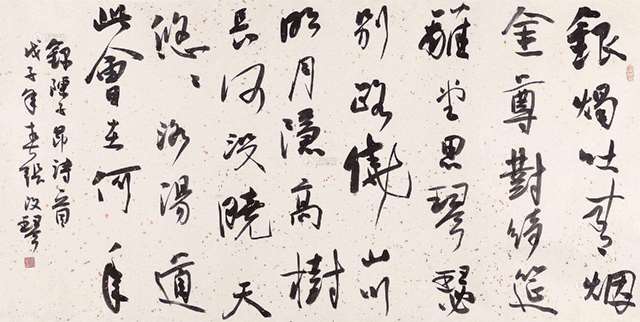 銀燭吐青烟
金尊對綺筵
離堂思琴瑟
别路繞山川
明月隱高樹
長河没曉天
悠々洛陽道
此會在何年
錄陳子昂詩一首
戊子年春張改琴